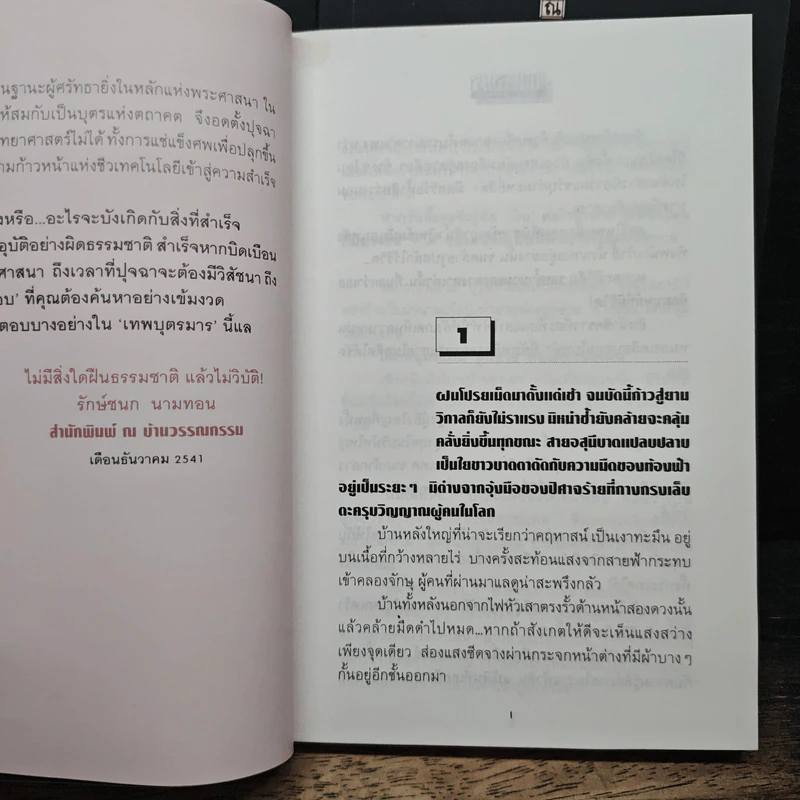 ณ
นฐานะผู้ศรัทธายิ่งในหลักแห่งพระศาสนา ใน
ห้สมกับเป็นบุตรแห่งตถาคต จึงอดตั้งปุจฉา
ทยาศาสตร์ไม่ได้ ทั้งการแช่แข็งศพเพื่อปลุกขึ้น
ามก้าวหน้าแห่งชีวเทคโนโลยีเข้าสู่ความสำเร็จ
งหรือ...อะไรจะบังเกิดกับสิ่งที่สำเร็จ
อุบัติอย่างผิดธรรมชาติ สำเร็จหากบิดเบือน
ศาสนา ถึงเวลาที่ปุจฉาจะต้องมีวิสัชนา ถึง
อบ' ที่คุณต้องค้นหาอย่างเข้มงวด
ตอบบางอย่างใน 'เทพบุตรมาร' นี้แล
ไม่มีสิ่งใดฝืนธรรมชาติ แล้วไม่วิบัติ!
รักษ์ชนก นามทอน
สำนักพิมพ์ ณ บ้านวรรณกรรม
เดือนธันวาคม 2541
1
ฝนโปรยเม็ดมาตั้งแต่เช้า จนบัดนี้ก้าวสู่ยาม
วิกาลก็ยังไม่ราแรง มิหนำซ้ำยังคล้ายจะคลุ้ม
คลั่งยิ่งขึ้นทุกขณะ สายอสุนีบาตแปลบปลาบ
เป็นใยขาวบาดตาตัดกับความมืดของท้องฟ้า
อยู่เป็นระยะๆ มิต่างจากอุ้งมือของปีศาจร้ายที่กางกรงเล็บ
ตะครุบวิญญาณผู้คนในโลก
บ้านหลังใหญ่ที่น่าจะเรียกว่าคฤหาสน์ เป็นเงาทะมึน อยู่
บนเนื้อที่กว้างหลายไร่ บางครั้งสะท้อนแสงจากสายฟ้ากระทบ
เข้าคลองจักษุ ผู้คนที่ผ่านมาแลดูน่าสะพรึงกลัว
บ้านทั้งหลังนอกจากไฟหัวเสาตรงรั้วด้านหน้าสองดวงนั้น
แล้วคล้ายมืดดำไปหมด...หากถ้าสังเกตให้ดีจะเห็นแสงสว่าง
เพียงจุดเดียว ส่องแสงซีดจางผ่านกระจกหน้าต่างที่มีผ้าบางๆ
กั้นอยู่อีกชั้นออกมา
1